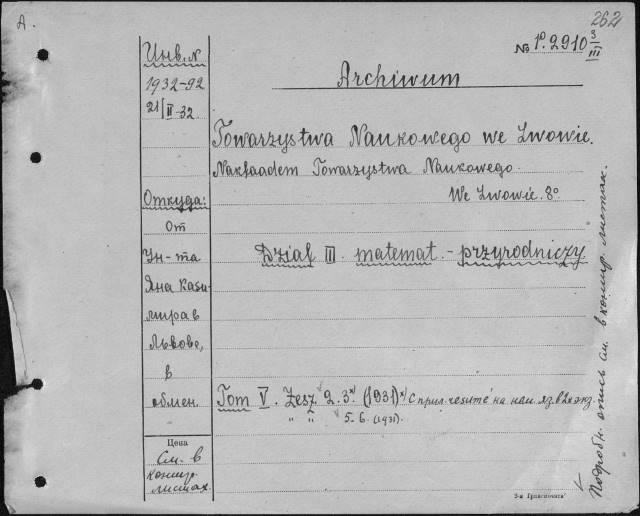 A.
262
№ 1º.2910 3/III
Инв. №
1932-92
21/II-32
Archiwum
Towarzystwa Naukowego we Lwowie.
Nakładem Towarzystwa Naukowego.
We Lwowie. 8º
Откуда:
От
Ун-та
Яна Кази-
мира в
Львове,
в
обмен.
Dział III. matemat. - przyrodniczy
Tom V. Zesz. 2. 3ˣ⁾ (1931)ˣ⁾ С прил.
на нем. яз. в 2х экз.
" " 5. 6. (1931).
Цена
См. в
концр.
листах
Подробн. опись см. в концр. листах.